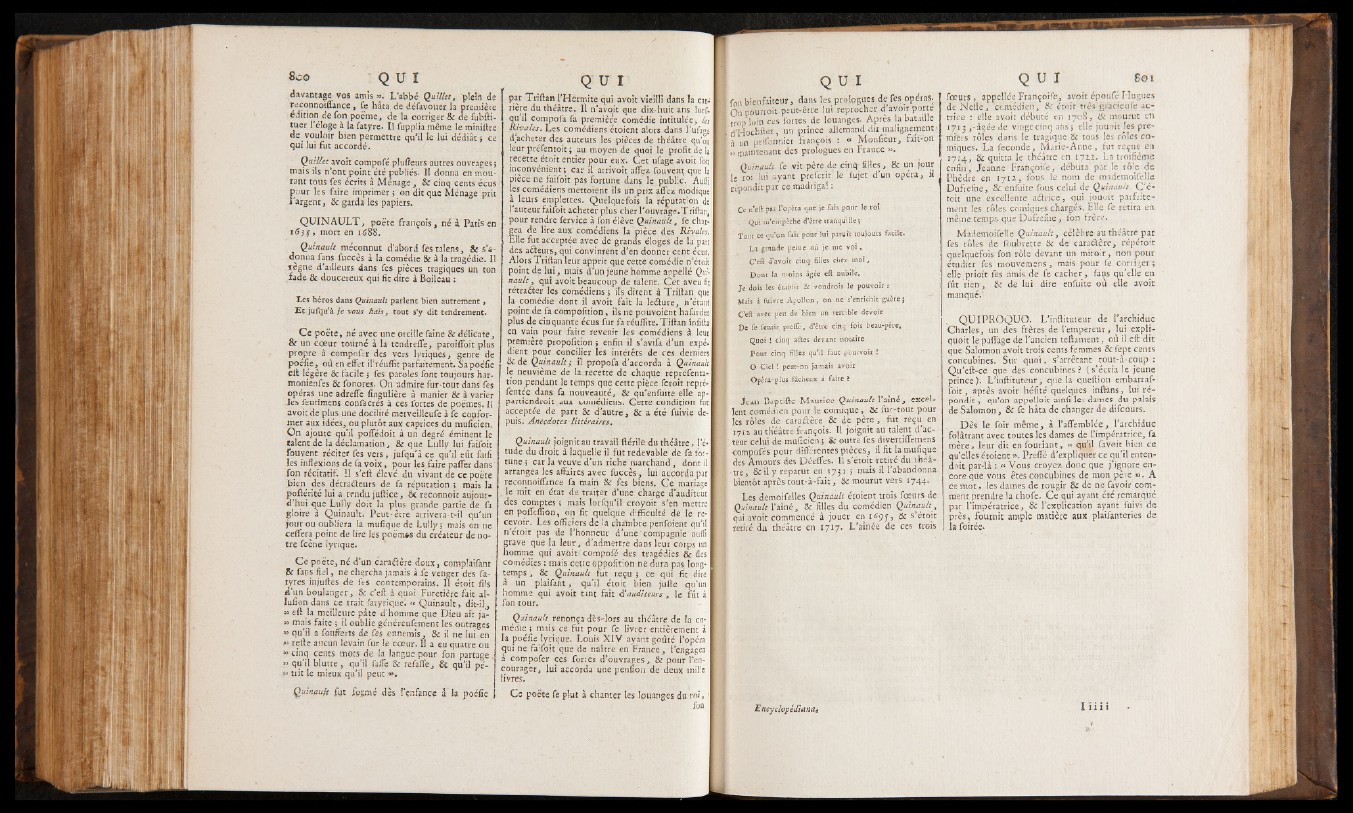 800 QUI
davantage vos amis ». L'abbé Quillet, plein de
reconnoissance, se hâta de désavouer la première
édition de son poëme, de la corriger & de substi-
tuer l'éloge à la satyre. Il supplia même le ministre
de vouloir bien permettre qu'il le lui dédiât; ce
qui lui fut accordé.
Quillet avoit composé plusieurs autres ouvrages;
mais ils n'ont point été publiés. Il donna en mou-
rant tous ses écrits à Ménage, & cinq cents écus
pour les faire imprimer; on dit que Ménage prit
l'argent, & garda les papiers.
QUINAULT, poëte françois, né à Paris en
1635, mort en 1688.
Quinault méconnut d'abord ses talens, & s'a-
donna sans succès à la comédie & à la tragédie. Il
règne d'ailleurs dans ses pièces tragiques un ton
fade & doucereux qui fit dire à Boileau :
Les héros dans Quinault parlent bien autrement,
Et jusqu'à je vous hais, tout s'y dit tendrement.
Ce poëte, né avec une oreille saine & délicate,
& un cœur tourné à la tendresse, paroissoit plus
propre à composer des vers lyriques, genre de
poésie, où en effet il réussit parfaitement. Sa poésie
est légère & facile; ses paroles sont toujours har-
monieuses & sonores. On admire sur-tout dans ses
opéras une adresse singulière à manier & à varier
les sentimens consacrés à ces sortes de poëmes. Il
avoit de plus une docilité merveilleuse à se confor-
mer aux idées, ou plutôt aux caprices du musicien.
On ajoute qu'il possédoit à un degré éminent le
talent de la déclamation, & que Lully lui faisoit
souvent réciter ses vers, jusqu'à ce qu'il eût saisi
les inflexions de sa voix, pour les faire passer dans
son récitatif. Il s'est élevé du vivant de ce poëte
bien des détracteurs de sa réputation; mais la
postérité lui a rendu justice, & reconnoit aujour-
d'hui que Lully doit la plus grande partie de sa
gloire à Quinault. Peut-être arrivera-t-il qu'un
jour on oubliera la musique de Lully; mais on ne
cessera point de lire les poëmes du créateur de no-
tre scène lyrique.
Ce poëte, né d'un caractère doux, complaisant
& sans fiel, ne chercha jamais à se venger des sa-
tyres injustes de ses contemporains. Il étoit fils
d'un boulanger, & c'est à quoi Furetière fait al-
lusion dans ce trait satyrique. « Quinault, dit-il,
» est la meilleure pâte d'homme que Dieu ait ja-
» mais faite; il oublie généreusement les outrages
» qu'il a soufferts de ses ennemis, & il ne lui en
» reste aucun levain sur le cœur. Il a eu quatre ou
» cinq cents mots de la langue pour son partage
» qu'il blutte, qu'il sasse & resasse, & qu'il pé-
» trit le mieux qu'il peut ».
Quinault fut formé dès l'enfance à la poésie
QUI
par Tristan l'Hermite qui avoit vieilli dans la car-
rière du théâtre. Il n'avoit que dix-huit ans lors-
qu'il composa sa première comédie intitulée, les
Rivales. Les comédiens étoient alors dans l'usage
d'acheter des auteurs les pièces de théâtre qu'on
leur présentoit; au moyen de quoi le profit de la
recette étoit entier pour eux. Cet usage avoit son
inconvénient; car il arrivoit assez souvent que la
pièce ne faisoit pas fortune dans le public. Aussi
les comédiens mettoient ils un prix assez modique
à leurs emplettes. Quelquefois la réputation de
l'auteur faisoit acheter plus cher l'ouvrage. Tristan,
pour rendre service à son élève Quinault, se char-
gea de lire aux comédiens la pièce des Rivales.
Elle fut acceptée avec de grands éloges de la part
des acteurs, qui convinrent d'en donner cent écus.
Alors Tristan leur apprit que cette comédie n'étoit
point de lui, mais d'un jeune homme appellé Qui-
nault, qui avoit beaucoup de talent. Cet aveu fit
rétracter les comédiens; ils dirent à Tristan que
la comédie dont il avoit fait la lecture, n'étant
point de sa composition, ils ne pouvoient hasarder
plus de cinquante écus sur sa réussite. Tristan insista
en vain pour faire revenir les comédiens à leur
première proposition; enfin il s'avisa d'un expé-
dient pour concilier les intérêts de ces derniers
& de Quinault; il proposa d'accorda à Quinault
le neuvième de la recette de chaque représenta-
tion pendant le temps que cette pièce seroit repré-
sentée dans sa nouveauté, & qu'ensuite elle ap-
partiendroit aux comédiens. Cette condition fut
acceptée de part & d'autre, & a été suivie de-
puis. Anecdotes littéraires.
Quinault joignit au travail stérile du théâtre, l'é-
tude du droit à laquelle il fut redevable de sa for-
tune; car la veuve d'un riche marchand, dont il
arrangea les affaires avec succès, lui accorda par
reconnoissance sa main & ses biens. Ce mariage
le mit en état de traiter d'une charge d'auditeur
des comptes; mais lorsqu'il croyoit s'en mettre
en possession, on fit quelque difficulté de le re-
cevoir. Les officiers de la chambre pensoient qu'il
n'étoit pas de l'honneur d'une compagnie aussi
grave que la leur, d'admettre dans leur corps un
homme qui avoit composé des tragédies & des
comédies : mais cette opposition ne dura pas long-
temps, & Quinault fut reçu; ce qui fit dire
à un plaisant, qu'il étoit bien juste qu'un
homme qui avoit tant fait d'auditeurs, le fût à
son tour.
Quinault renonça dès-lors au théâtre de la co-
médie; mais ce fut pour se livrer entièrement à
la poésie lyrique. Louis XIV ayant goûté l'opéra
qui ne faisoit que de naître en France, l'engagea
à composer ces sortes d'ouvrages, & pour l'en-
courager, lui accorda une pension de deux mille
livres.
Ce poëte se plut à chanter les louanges du roi,
son
QUI
son bienfaiteur, dans les prologues de ses opéras.
On pourroit peut-être lui reprocher d'avoir porté
trop loin ces sortes de louanges. Après la bataille
d'Hochstet, un prince allemand dit malignement
à un prisonnier françois : « Monsieur, fait-on
» maintenant des prologues en France ».
Quinault se vit père de cinq filles, & un jour
le roi lui ayant prescrit le sujet d'un opéra, il
répondit par ce madrigal :
Ce n'est pas l'opéra que je fais pour le roi
Qui m'empêche d'être tranquille;
Tout ce qu'on fait pour lui paroît toujours facile.
La grande peine où je me voi,
C'est d'avoir cinq filles chez moi,
Dont la moins âgée est nubile.
Je dois les établir & voudrois le pouvoir :
Mais à suivre Apollon, on ne s'enrichit guère;
C'est avec peu de bien un terrible devoir
De se sentir pressé, d'être cinq fois beau-père,
Quoi ! cinq actes devant notaire
Pour cinq filles qu'il faut pourvoir !
O Ciel ! peut-on jamais avoir
Opéra plus fâcheux à faire ?
Jean Baptiste Maurice Quinault l'aîné, excel-
lent comédien pour le comique, & sur-tout pour
les rôles de caractère & de père, fut reçu en
1712 au théâtre françois. Il joignit au talent d'ac-
teur celui de musicien; & outre ses divertissemens
composés pour différentes pièces, il fit la musique
des Amours des Déesses. Il s'étoit retiré du théâ-
tre, & il y reparut en 1731; mais il l'abandonna
bientôt après tout-à-fait, & mourut vers 1744.
Les demoiselles Quinault étoient trois sœurs de
Quinault l'aîné, & filles du comédien Quinault,
qui avoit commencé à jouer en 1695, & s'étoit
retiré du théâtre en 1717. L'aînée de ces trois
Encyclopédiana.
QUI 801
sœurs, appellée Françoise, avoit épousé Hugues
de Nelle, comédien, & étoit très gracieuse ac-
trice : elle avoit débuté en 1708, & mourut en
1713, âgée de vingt cinq ans; elle jouoit les pre-
miers rôles dans le tragique & tous les rôles co-
miques. La seconde, Marie-Anne, fut reçue en
1714, & quitta le théâtre en 1722. La troisième
enfin, Jeanne Françoise, débuta par le rôle de
Phèdre en 1712, sous le nom de mademoiselle
Dufresne, & ensuite sous celui de Quinault. C'é-
toit une excellente actrice, qui jouoit parfaite-
ment les rôles comiques chargés. Elle se retira en
même temps que Dufresne, son frère.
Mademoiselle Quinault, célèbre au théâtre par
ses rôles de soubrette & de caractère, répétoit
quelquefois son rôle devant un miroir, non pour
étudier ses mouvemens, mais pour se corriger;
elle prioit ses amis de se cacher, sans qu'elle en
fût rien, & de lui dire ensuite où elle avoit
manqué.
QUIPROQUO. L'instituteur de l'archiduc
Charles, un des frères de l'empereur, lui expli-
quoit le passage de l'ancien testament, où il est dit
que Salomon avoit trois cents femmes & sept cents
concubines. Sur quoi, s'arrêtant tout-à-coup :
Qu'est-ce que des concubines ? (s'écria le jeune
prince). L'instituteur, que la question embarras-
soit, après avoir hésité quelques instans, lui ré-
pondit, qu'on appelloit ainsi les dames du palais
de Salomon, & se hâta de changer de discours.
Dès le soir même, à l'assemblée, l'archiduc
folâtrant avec toutes les dames de l'impératrice, sa
mère, leur dit en souriant, « qu'il savoit bien ce
qu'elles étoient ». Pressé d'expliquer ce qu'il enten-
doit par-là : « Vous croyez donc que j'ignore en-
core que vous êtes concubines de mon père ». A
ce mot, les dames de rougir & de ne savoir com-
ment prendre la chose. Ce qui ayant été remarqué
par l'impératrice, & l'explication ayant suivi de
près, fournit ample matière aux plaisanteries de
la soirée.
Iiiii